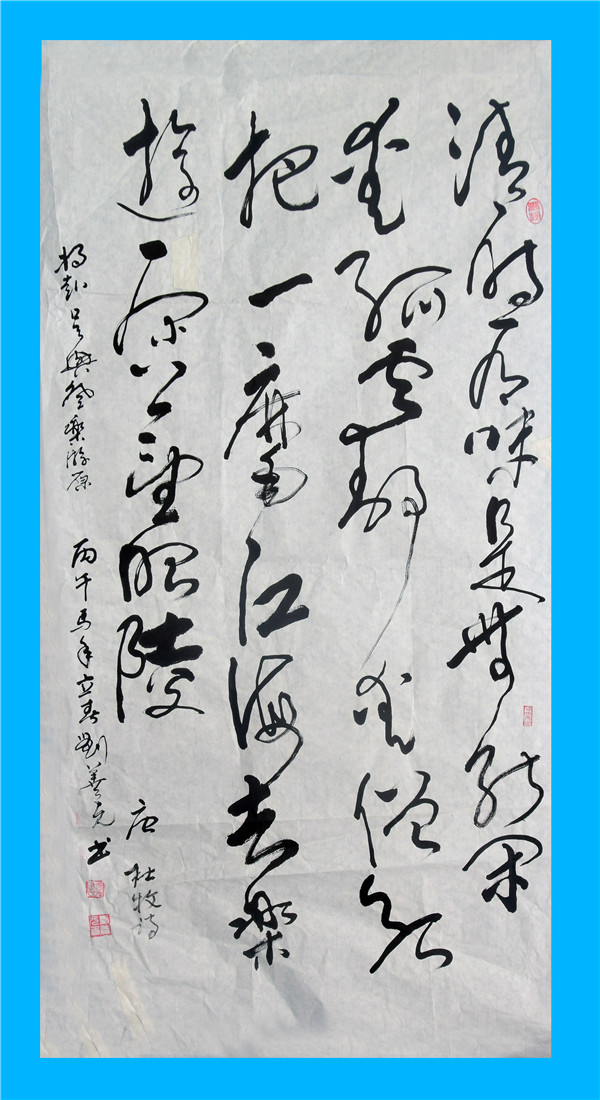 清时有味是無能闲
愛孤雲静愛僧欲
把一麾江海去樂
遊原上望昭陵
唐 杜牧诗
将赴吴興登樂游原 丙午马年立春劉善元书